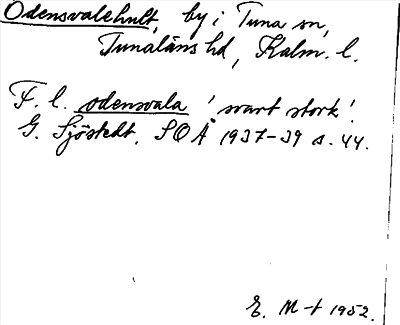 Odensvalehult, by i Tuna sn,
Tunaläns hd, Kalm. l.
F. l. odensvala 'svart stork'.
G. Sjöstedt. SOÅ 1937-39 s. 44.
E. M-t 1952.